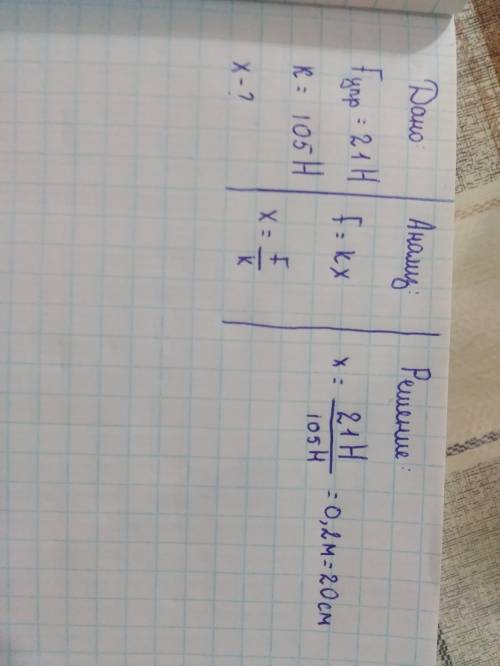 Дано:
Fупр = 21Н
к = 105Н
х - ?
Анализ:
F = kx
x = F/k
Решение:
x = 21Н/105Н = 0,2м = 20см